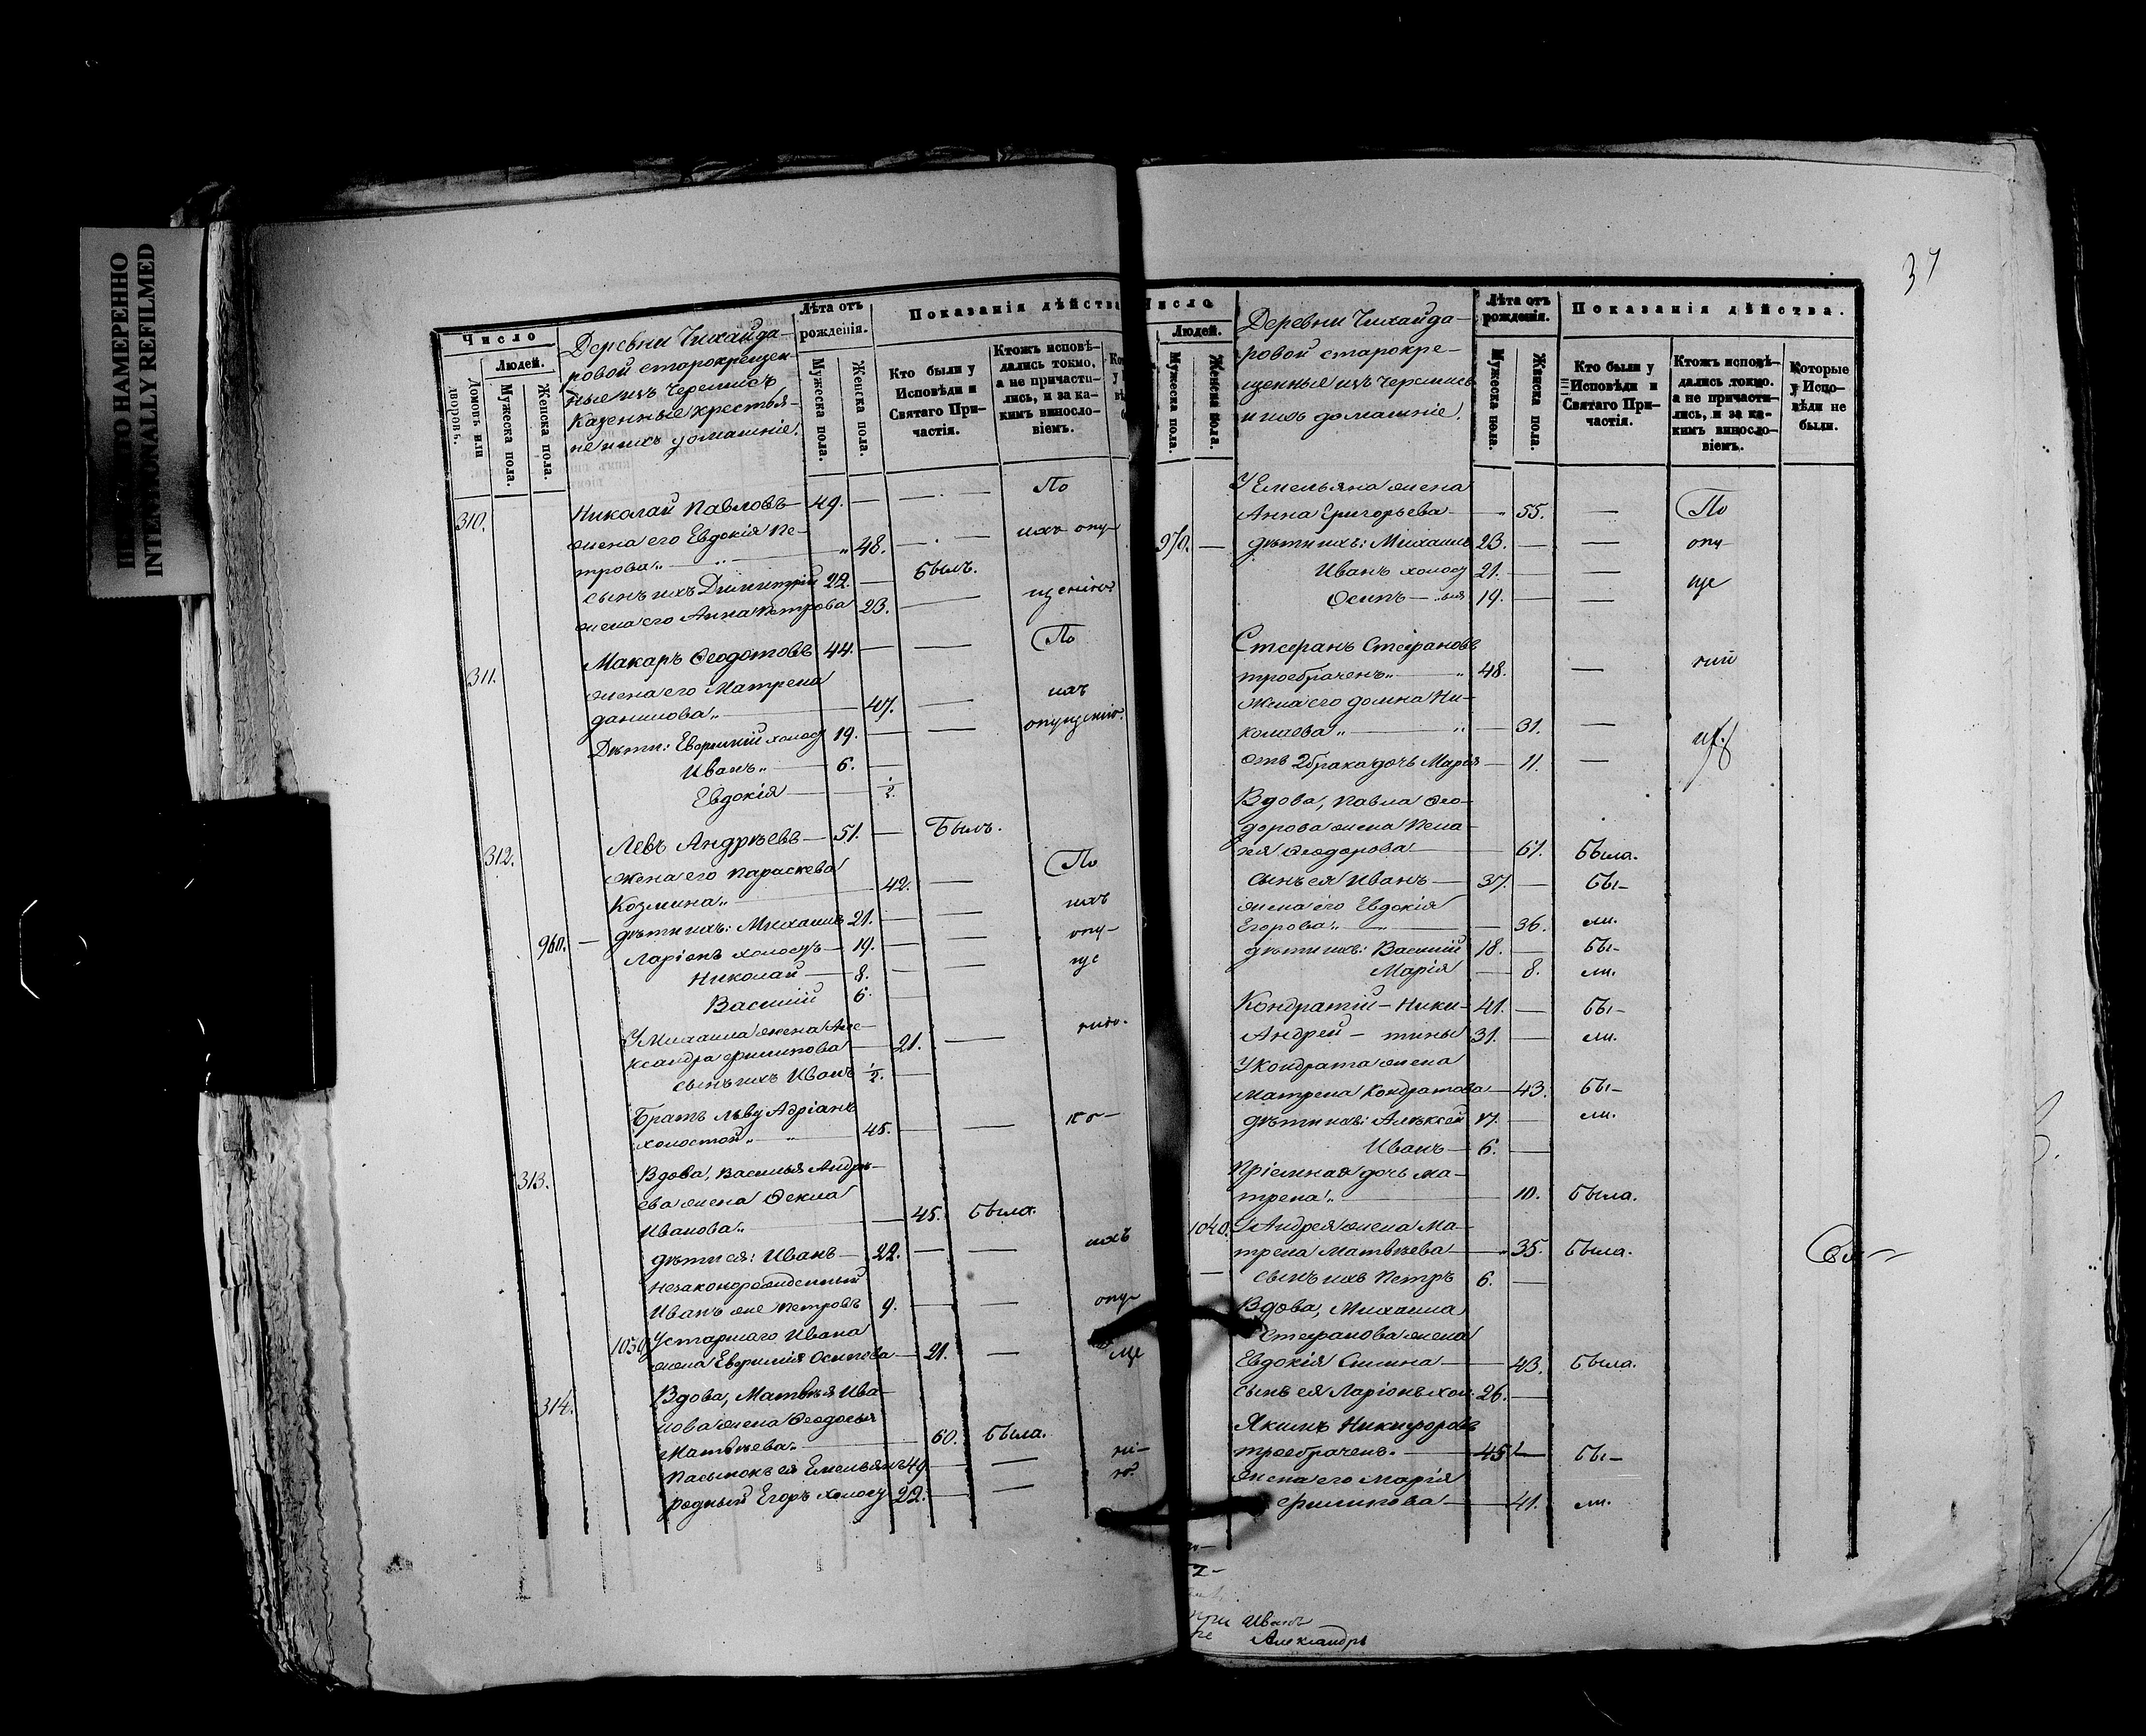 НАМЕРЕННО
INTENTIONALLY REFILMED
Число
Людей.
Домовъ или дворовъ.
Мужеска пола.
Женска пола.
Деревни Чихайда-
ровой старокрещен-
ные изъ Черемисъ
Казенные крестья-
не и ихъ домашніе.
Лѣта отъ рожденія.
Мужеска пола.
Женска пола.
Показанія дѣйства
Кто были у
Исповѣди и
Святаго При-
частія.
Ктожъ исповѣ-
дались токмо,
а не причасти-
лись, и за ка-
кимъ виносло-
віемъ.
310. Николай Павловъ — 49. — — По
жена его Евдокія Пе-
трова „ — „ 48. — ихъ опу-
сынъ ихъ Димитрій 22. — Былъ.
жена его Анна Петрова 23. — щенію
311. Макаръ Ѳеодотовъ 44. — — По
жена его Матрена
Данилова „ — 47. — ихъ
Дѣти: Евфимій холос 19. — — опущенію.
Иванъ „ — 6. —
Евдокія — 1/2.
312. Левъ Андреевъ — 51. — Былъ.
жена его Параскева
Козмина „ — 42. — По
960. — дѣти ихъ: Михаилъ 21. — — ихъ
Ларіонъ холостъ — 19. — — опу-
Николай — 8. — — ще
Василій 6. —
У Михаила жена Але-
ксандра Филипова — 21. — нію.
сынъ ихъ Иванъ 1/2. —
Братъ Льву Адріанъ
холостой „ „ 45. — —
313. Вдова, Василья Андрѣ-
ева жена Ѳекла
Иванова „ — 45. Была.
дѣти ея: Иванъ — 22. — — ихъ
незаконорожденный
Иванъ же Петровъ 9. — — опу-
У старшаго Ивана
жена Евфимія Осипова — 21. — ще
314. Вдова, Матвѣя Ива-
нова жена Ѳеодосья
Матвѣева „ — 60. Была.
Пасынокъ ея Емельянъ 49. — — ні-
родный Егоръ холос 22. — — ю.
37
Число
Людей.
Мужеска пола.
Женска пола.
Деревни Чихайда-
ровой старокре-
щенные изъ Черемисъ
и ихъ домашніе.
Лѣта отъ рожденія.
Мужеска пола.
Женска пола.
Показанія дѣйства.
Кто были у
Исповѣди и
Святаго При-
частія.
Ктожъ исповѣ-
дались токмо.
а не причасти-
лись, и за ка-
кимъ винослo-
віемъ.
Которые
у Испо-
вѣди не
были.
У Емельяна жена
Анна Григорьева — „ 55. — По
970. — дѣти ихъ: Михаилъ 23. — — опу-
Иванъ холос 21. — — ще
Осипъ — 19. — —
Стефанъ Стефановъ
троебраченъ „ „ 48. — нию
жена его Домна Ни-
колаева „ — „ — 31. —
отъ 2 брака дочь Марія — 11. —
Вдова, Павла Ѳео-
дорова жена Пела-
гея Ѳеодорова — 61. Была.
сынъ ея Иванъ — 37. — Бы-
жена его Евдокія
Егорова „ — 36. ли.
дѣти ихъ: Василій 18. — Бы-
Марія — 8. ли.
Кондратій — Ники- 41. — Бы-
Андрей — тины 31. — ли.
У Кондрата жена
Матрена Кондратова — 43. Бы-
дѣти ихъ: Алексѣй — ли.
Иванъ — 6. —
Пріемная дочь Ма-
трена „ — 10. Была.
1040. У Андрея жена Ма-
трена Матвѣева — „ 35. Была.
— сынъ ихъ Петръ 6. —
Вдова, Михаила
Стефанова жена
Евдокія Силина — 43. Была.
сынъ ея Ларіонъ хол. 26. —
Якимъ Никифоровъ
троебраченъ. — 45. — Бы-
жена его Марія
Филипова — 41. ли.
Иванъ
Александръ